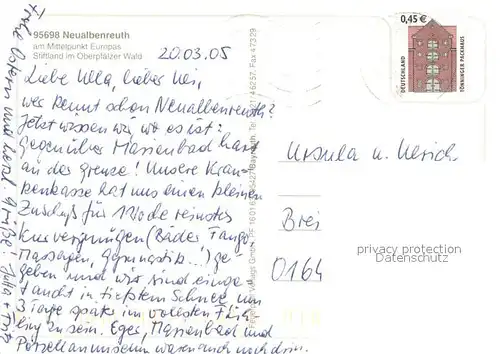 95698 Neualbenreuth
am Mittelpunkt Europas
Stiftland im Oberpfälzer Wald
20.03.05
0,45 €
DEUTSCHLAND
TÖNNINGER PACKHAUS
Liebe Ulla, lieber Uli,
wer kennt schon Neualbenreuth?
Jetzt wissen wir, wo es ist:
Gegenüber Marienbad hart
an der Grenze! Unsere Kran-
kenkasse hat uns einen kleinen
Zuschuß für 1 Woche reinstes
Kurvergnügen (Bäder, Fango,
Massagen, Gymnastik...) ge-
geben und wir sind einge-
taucht in tiefstem Schnee, um
3 Tage später im vollsten Früh-
ling zu sein. Eger, Marienbad und
Porzellanmuseum waren auch noch drin.
Frohe Ostern und herzl. Grüße! Jutta + Fritz
Ursula u. Ulrich
Brei
0164
privacy protection
Datenschutz